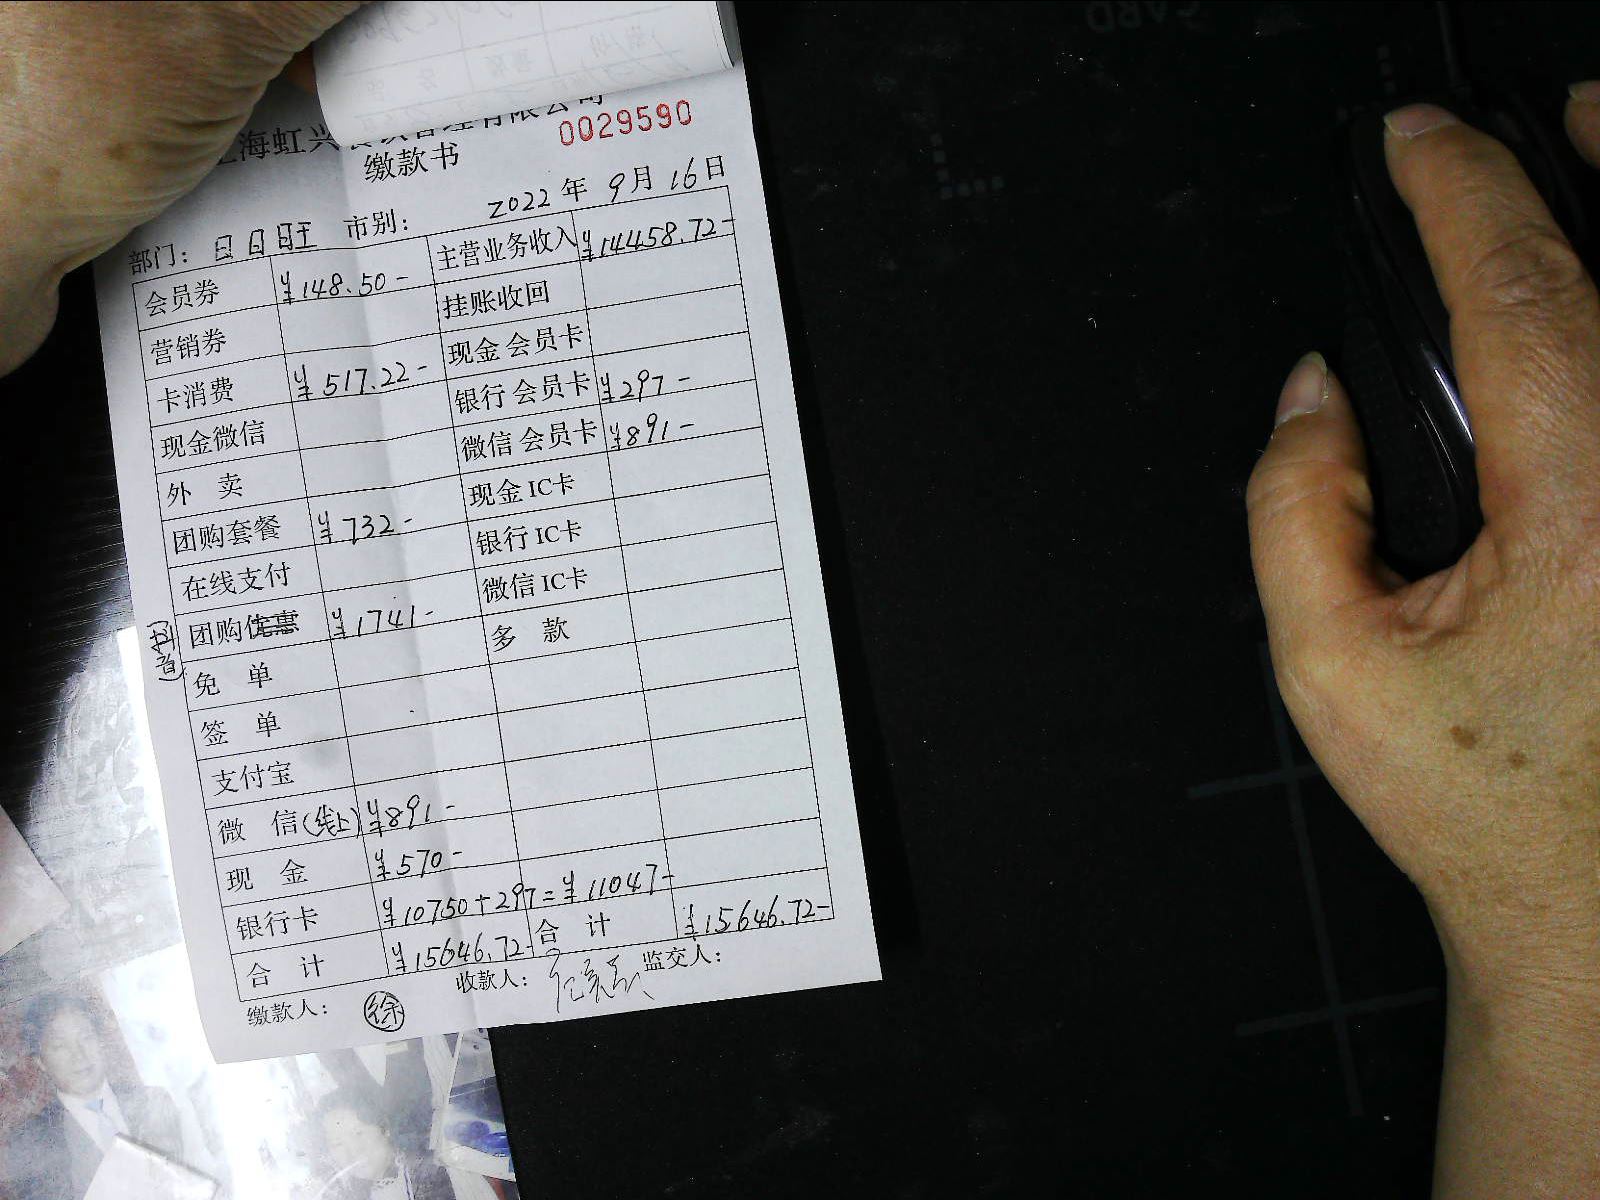 上海虹兴餐饮管理有限公司
0029590
缴款书
部门：日日旺 市别： 2022年9月16日
会员券 ¥148.50- 主营业务收入 ¥14458.72-
营销券 挂账收回
卡消费 ¥517.22- 现金 会员卡
现金微信 银行 会员卡 ¥297-
外 卖 微信 会员卡 ¥891-
团购套餐 ¥732- 现金 IC卡
在线支付 银行 IC卡
(抖音) 团购优惠 ¥1741- 微信 IC卡
免 单 多 款
签 单
支付宝
微 信(线上) ¥891-
现 金 ¥570-
银行卡 ¥10750+297=¥11047-
合 计 ¥15646.72- 合 计 ¥15646.72-
缴款人： 徐 收款人： 监交人：